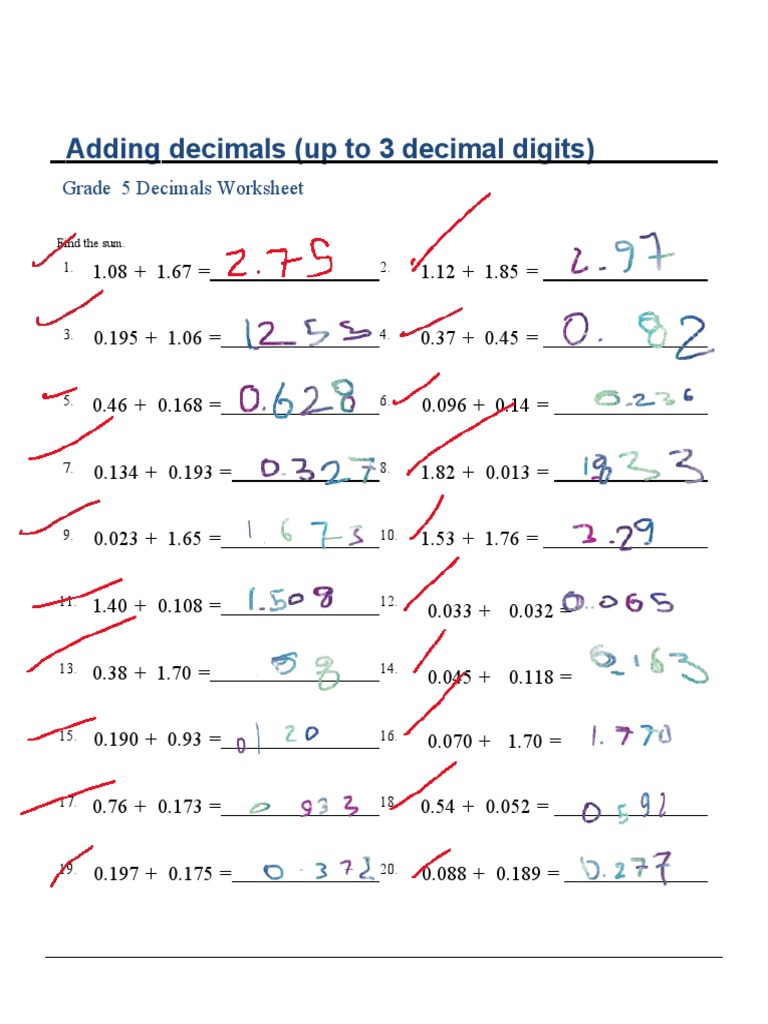 Adding decimals (up to 3 decimal digits)
Grade 5 Decimals Worksheet
Find the sum.
1. 1.08 + 1.67 = 2.75 2. 1.12 + 1.85 = 2.97
3. 0.195 + 1.06 = 1255 4. 0.37 + 0.45 = 0.82
5. 0.46 + 0.168 = 0.628 6. 0.096 + 0.14 = 0.236
7. 0.134 + 0.193 = 0.327 8. 1.82 + 0.013 = 1833
9. 0.023 + 1.65 = 1.673 10. 1.53 + 1.76 = 3.29
11. 1.40 + 0.108 = 1.508 12. 0.033 + 0.032 = 0.065
13. 0.38 + 1.70 = 14. 0.045 + 0.118 = 0.163
15. 0.190 + 0.93 = 0120 16. 0.070 + 1.70 = 1.770
17. 0.76 + 0.173 = 0 933 18. 0.54 + 0.052 = 0 592
19. 0.197 + 0.175 = 0.372 20. 0.088 + 0.189 = 0.277